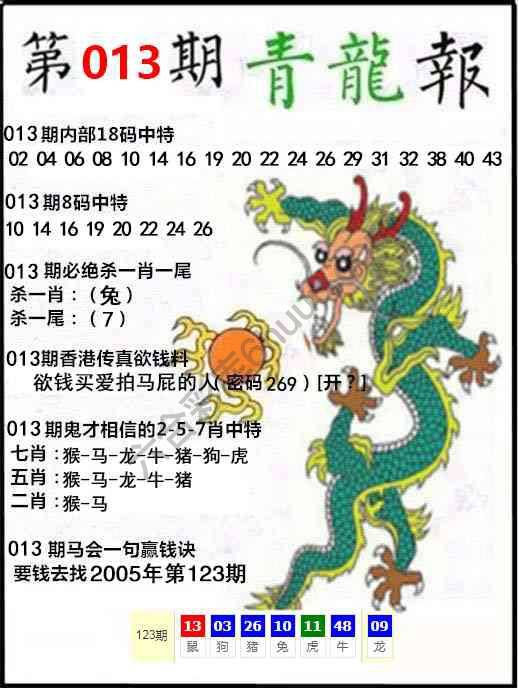 第013期 青龍報
013期内部18码中特
02 04 06 08 10 14 16 19 20 22 24 26 29 31 32 38 40 43
013期8码中特
10 14 16 19 20 22 24 26
013 期必绝杀一肖一尾
杀一肖：(兔)
杀一尾：(7)
013期香港传真欲钱料
欲钱买爱拍马屁的人(密码269) [开?]
013期鬼才相信的2-5-7肖中特
七肖:猴-马-龙-牛-猪-狗-虎
五肖:猴-马-龙-牛-猪
二肖:猴-马
013 期马会一句赢钱诀
要钱去找2005年第123期
123期 13 03 26 10 11 48 09
鼠 狗 猪 兔 虎 牛 龙